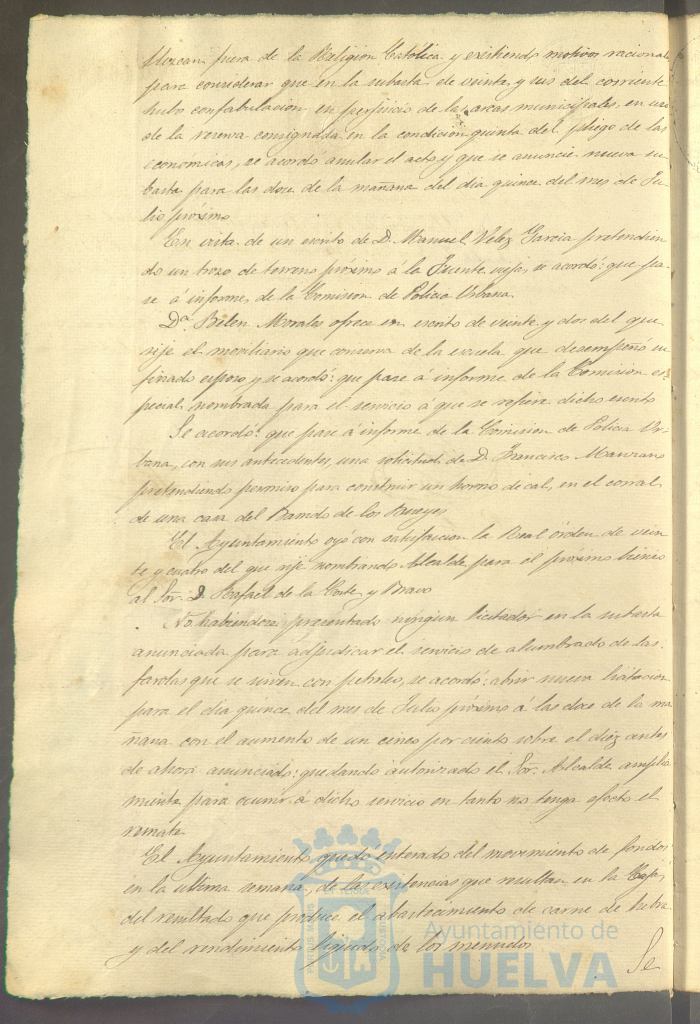 fuera de la Religion Católica y existiendo motivos racional
para considerar que en la subasta de veinte y seis del corriente
hubo confabulacion en perjuicio de las arcas municipales, en uso
de la reserva consignada en la condicion quinta del pliego de las
economicas, se acordó anular el acto y que se anuncie nueva su-
basta para las doce de la mañana del dia quince del mes de Ju-
lio próximo
En vista de un escrito de D. Manuel Velez Garcia pretendien
do un trozo de terreno próximo á la Fuente vieja, se acordó: que pa-
se á informe de la Comision de Policia Urbana.
Dª Belen Morales ofrece en escrito de veinte y dos del que
rije el moviliario que conserva de la escuela que desempeñó su
finado esposo y se acordó: que pase á informe de la Comision es
pecial nombrada para el servicio á que se refiere dicho escrito
Se acordó: que pase á informe de la Comision de Policia Ur-
bana, con sus antecedentes, una solicitud de D. Francisco Manzano
pretendiendo permiso para construir un horno de cal, en el corral
de una casa del Barrio de los Bueyes
El Ayuntamiento oyó con satisfaccion la Real órden de vein
te y cuatro del que rije nombrando Alcalde para el próximo bienio
al Sor. D. Rafael de la Corte y Bravo
No habiendose presentado ningun licitador en la subasta
anunciada para adjudicar el servicio de alumbrado de las
farolas que se sirven con petroleo, se acordó: abrir nueva licitacion
para el dia quince del mes de Julio próximo á las doce de la ma
ñana con el aumento de un cinco por ciento sobre el diez antes
de ahora anunciado: quedando autorizado el Sor. Alcalde amplia
mente para ocurrir á dicho servicio en tanto no tenga efecto el
remate
El Ayuntamiento quedó enterado del movimiento de fondos
en la ultima semana, de las existencias que resultan en la Caja,
del resultado que produce el abastecimiento de carne de hebra
y del rendimiento líquido de los menudos
Se
Ayuntamiento de
HUELVA